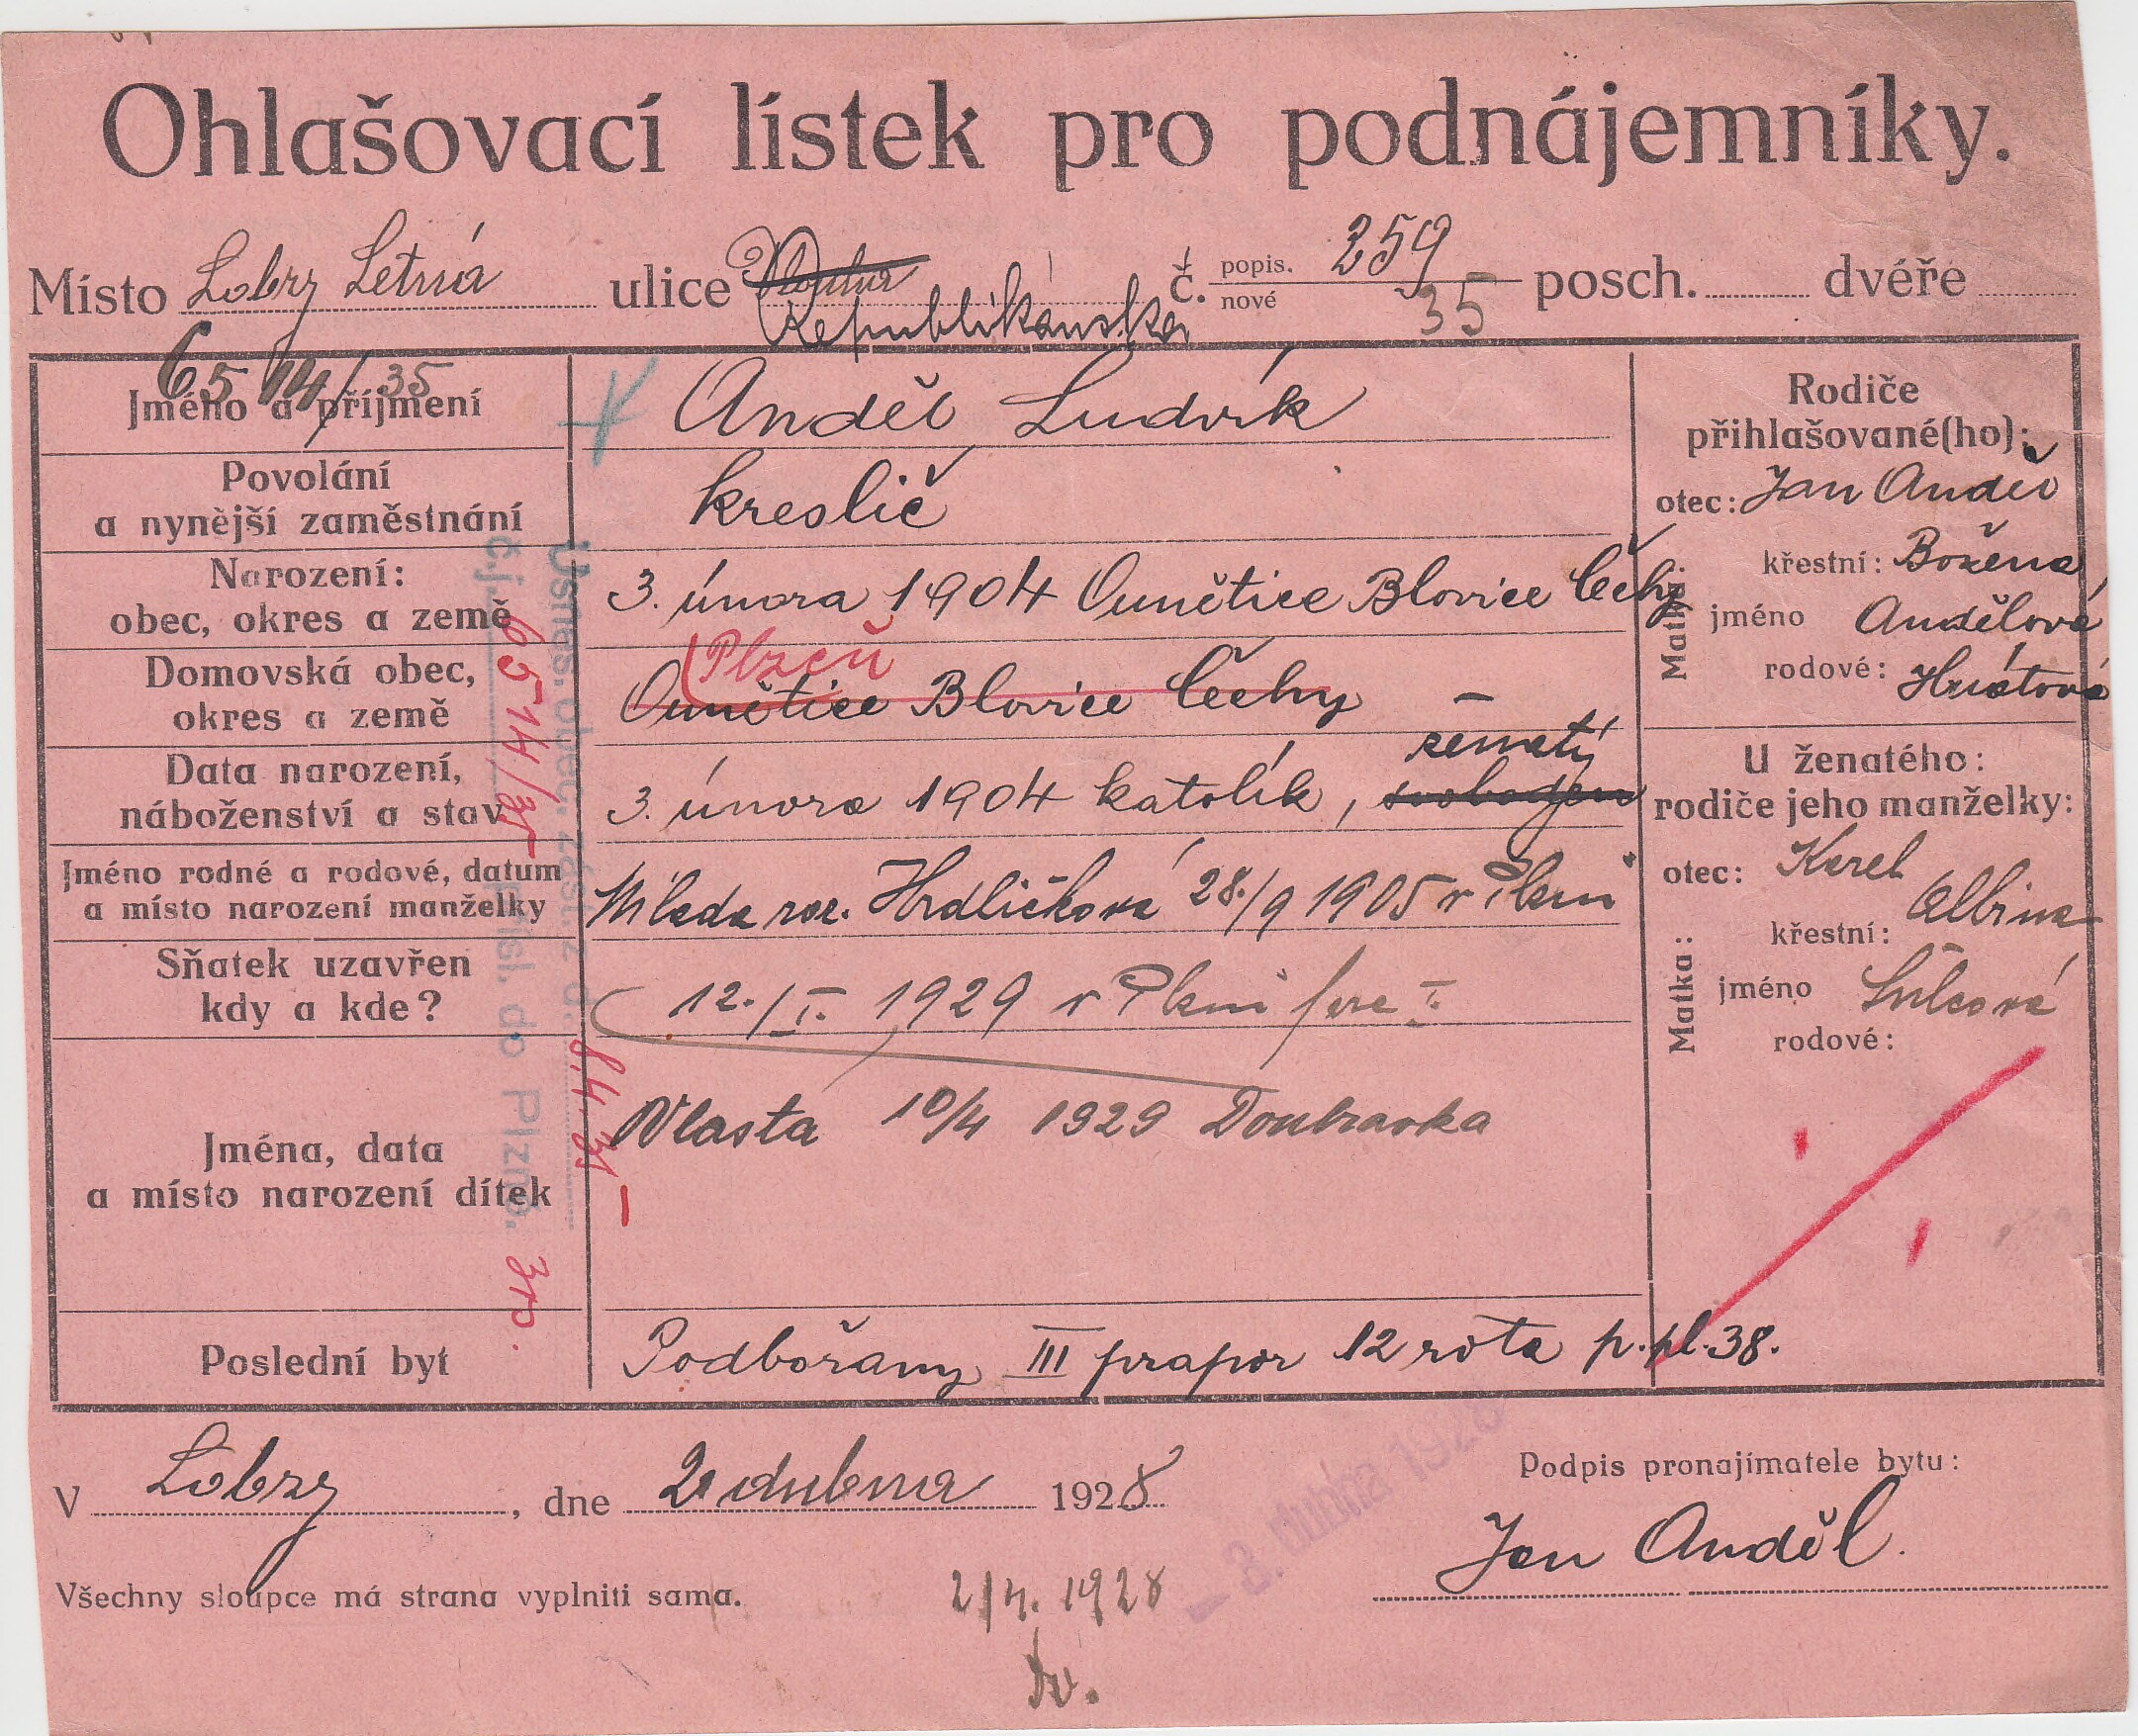 Ohlašovací lístek pro podnájemníky.
Místo Lobzy Letná ulice Republikánska č. popis. 259 posch. dvéře
nové 35
6514/35
Jméno a příjmení Anděl Ludvík
Povolání
a nynější zaměstnání kreslič
Narození:
obec, okres a země 3. února 1904 Ounětice Blovice Čechy
Plzeň
Domovská obec,
okres a země Ounětice Blovice Čechy
ženatý
Data narození,
náboženství a stav 3. února 1904 katolík, svoboden
Jméno rodné a rodové, datum
a místo narození manželky Milada roz. Hrdličková 28./9 1905 v Plzni
Sňatek uzavřen
kdy a kde? 12./I. 1929 v Plzni
Jména, data
a místo narození dítek Vlasta 10/4 1929 Doubravka
Poslední byt Podbořany III prapor 12 rota p. pl. 38.
Rodiče
přihlašované(ho):
otec: Jan Anděl
Matka:
křestní: Božena
jméno Andělová
rodové:
U ženatého:
rodiče jeho manželky:
otec: Karel
Matka:
křestní: Albina
jméno
rodové:
Usnes. obec. zast. z d. 8.4.35
č.j. 6514/35 přísl. do Plzně.
V Lobzy, dne 2 dubna 1928
- 3. dubna 1928
Podpis pronajímatele bytu:
Jan Anděl.
Všechny sloupce má strana vyplniti sama.
2/4. 1928